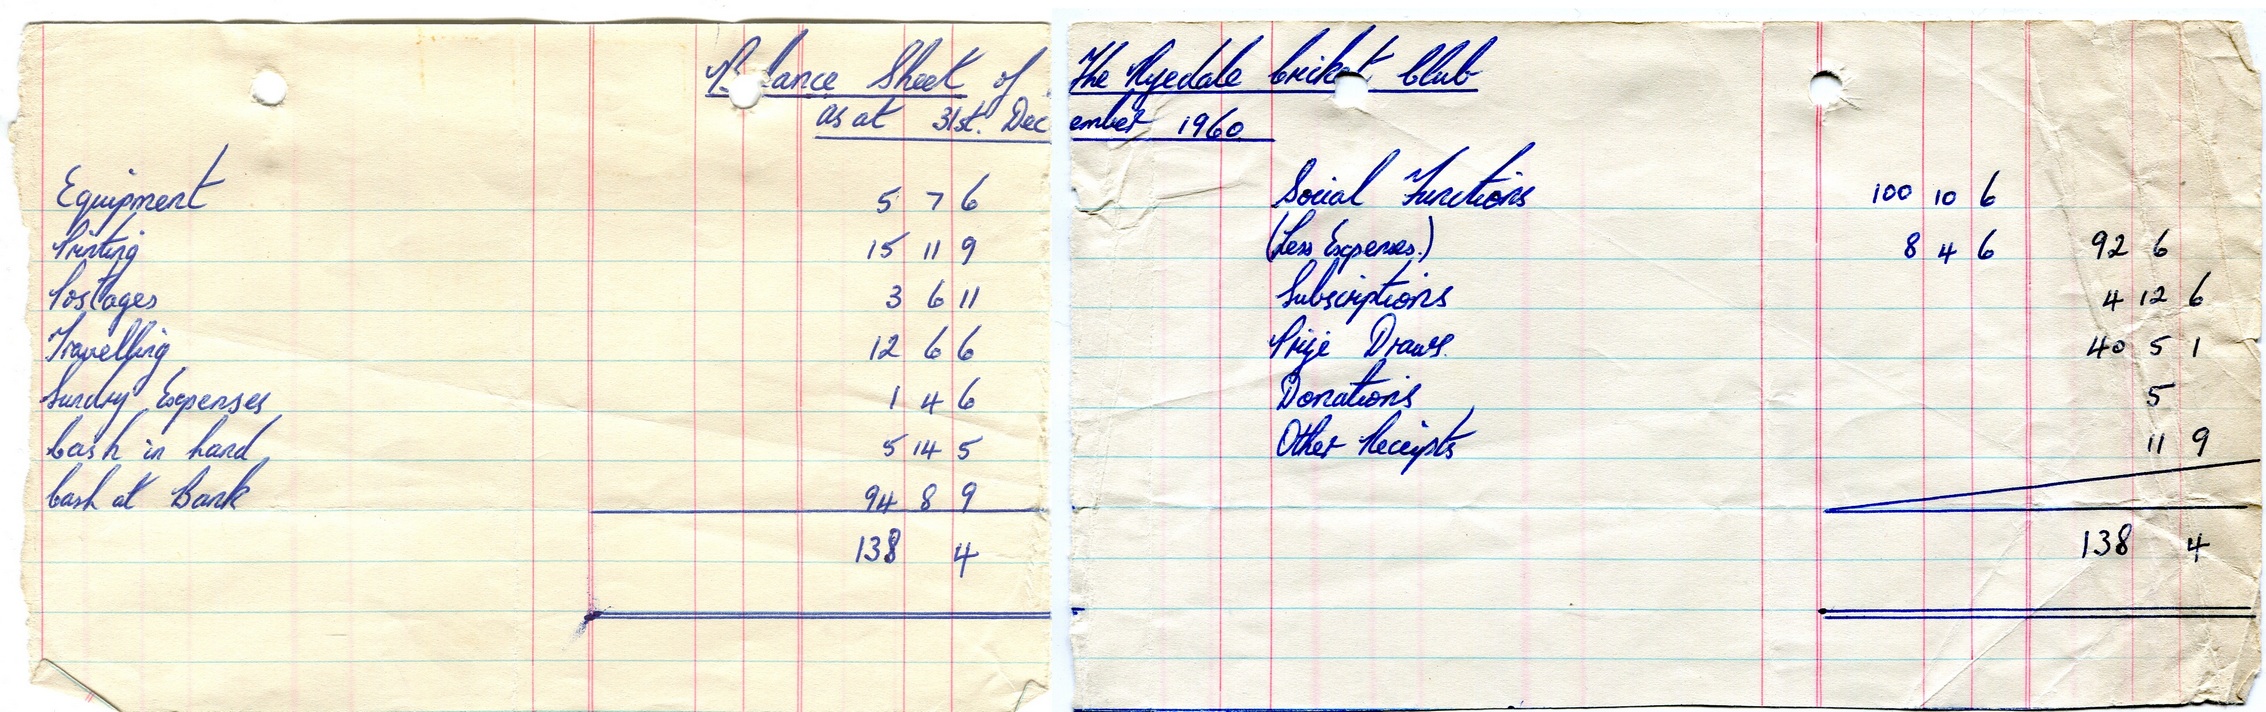 Balance Sheet of The Ryedale Cricket Club
as at 31st. December 1960
Equipment 5 7 6
Printing 15 11 9
Postages 3 6 11
Travelling 12 6 6
Sundry Expenses 1 4 6
Cash in hand 5 14 5
Cash at Bank 94 8 9
138 4
Social Functions 100 10 6
(Less Expenses.) 8 4 6 92 6
Subscriptions 4 12 6
Prize Draws. 40 5 1
Donations 5
Other Receipts 11 9
138 4